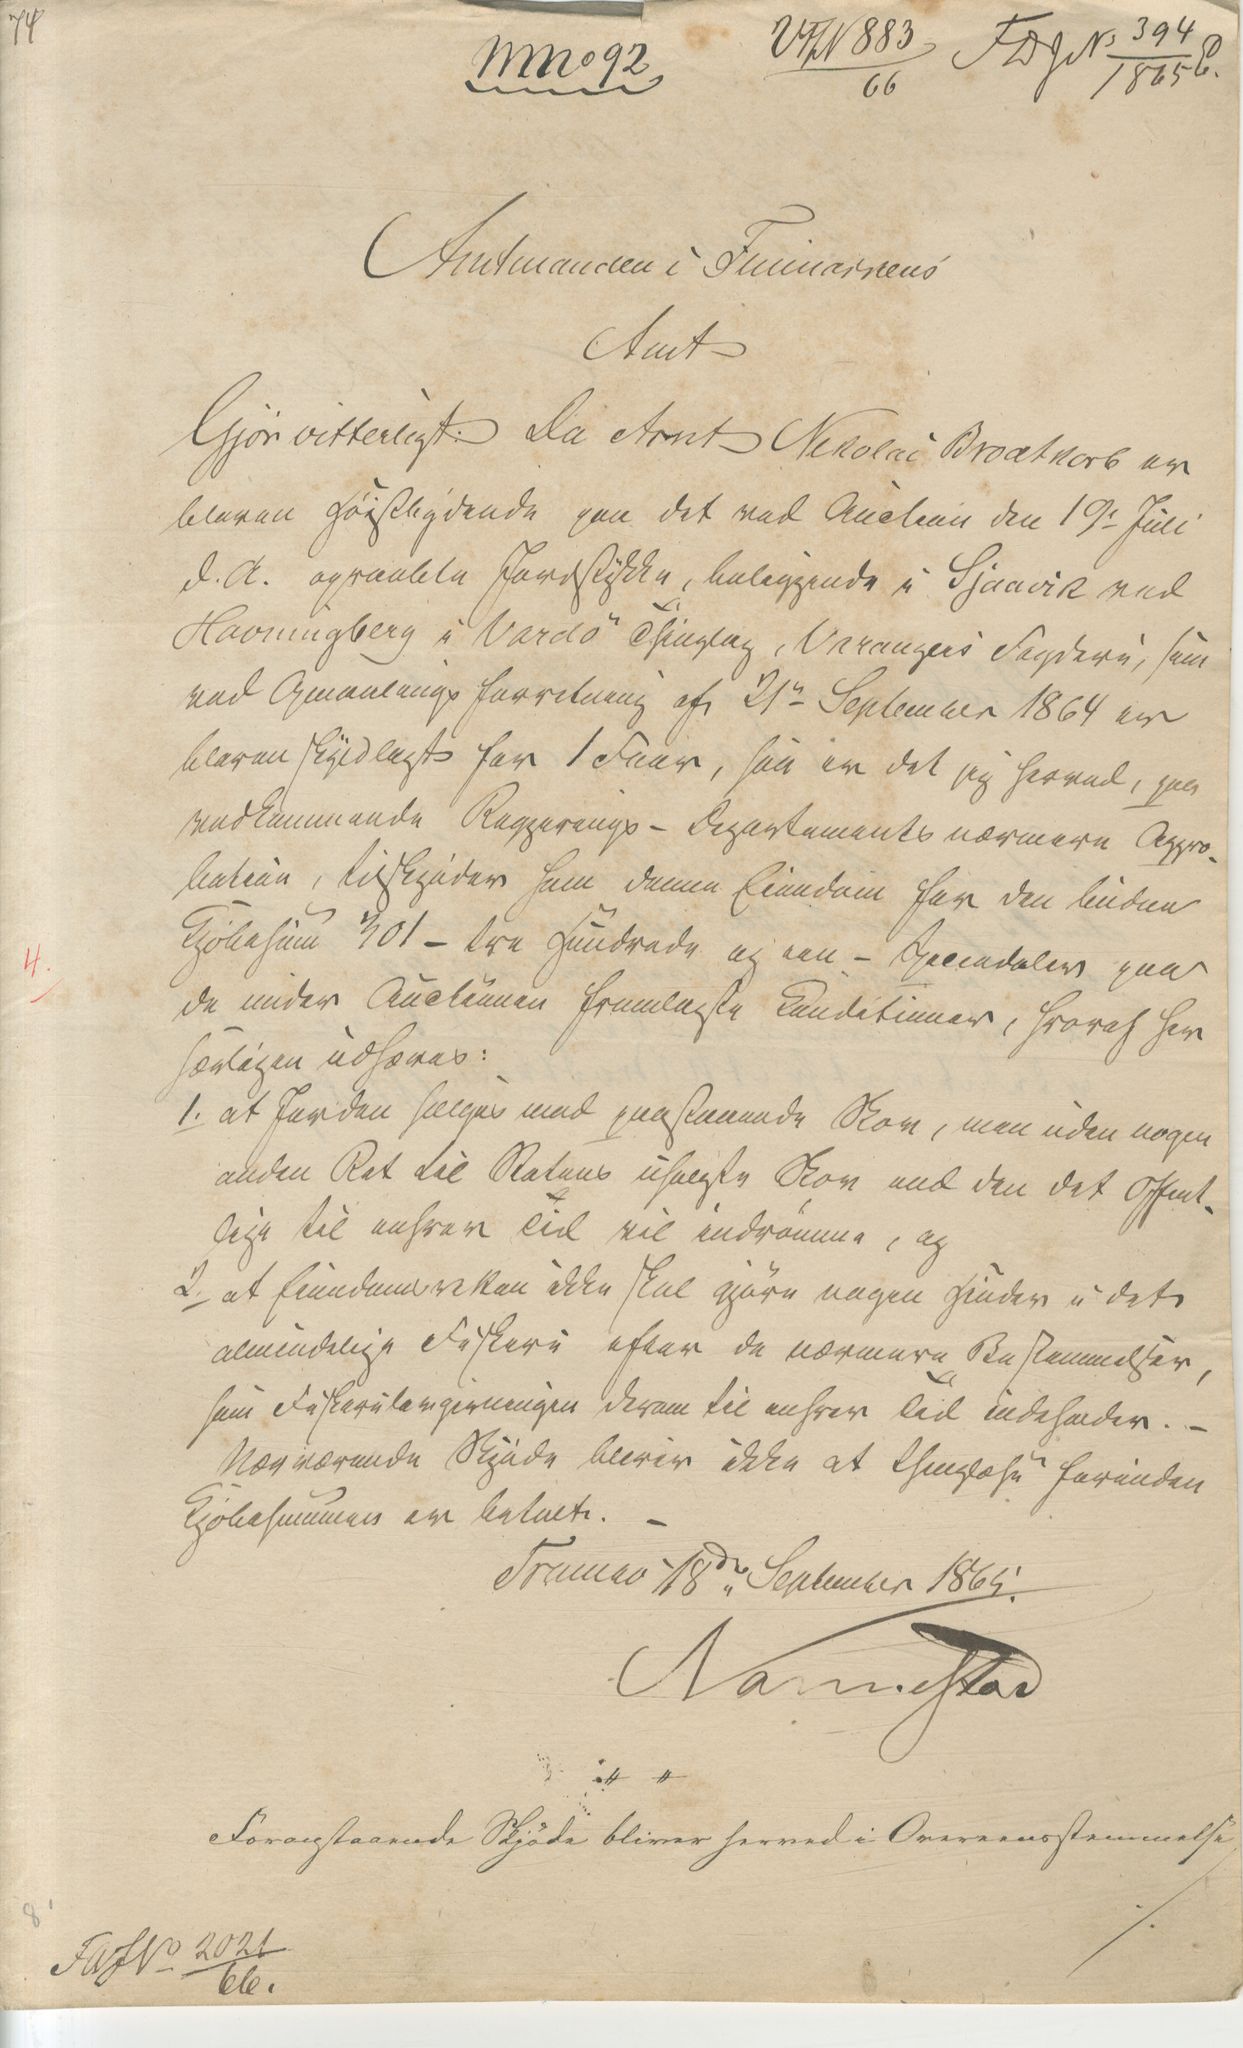 74
MNo 92
VFJN 883
66
FDJNo 394
1865
Amtmanden i Finmarkens
Amt
Gjør vitterligt: Da Arnt Nekolai Brodtkorb er
bleven høistbydende paa det ved Auction den 19de Juli
d. A. opraabte Jordstykke, beliggende i Sjaavik ved
Havningberg i Vardö Thinglag, Varangers Fogderi, som
ved Opmaalings forretning af 21de September 1864 er
bleven skyldlagt for 1 Favn, saa er det jeg herved, paa
vedkommende Regjerings-Departements nærmere Appro-
bation, tilskjøder ham denne Eiendom for den budne
Kjøbesum 301 - tre Hundrede og een - Speciedaler paa
de under Auctionen fremlagte Conditioner, hvoraf her
særligen udhæves:
1. at Jorden sælges med paastaaende Skov, men uden nogen
anden Ret til Statens usolgte Skov end den det Offent-
lige til enhver Tid vil indrömme, og
2. at Eiendomsretten ikke skal gjøre nogen Hinder i det
almindelige Fiskeri efter de nærmere Bestemmelser,
som Fiskerilovgivningen derom til enhver Tid indeholder. -
Nærværende Skjøde bliver ikke at thinglæse forinden
Kjøbesummen er betalt. -
Tromsö 18de September 1865.
4.
Foranstaaende Skjöde bliver herved i Overeensstemmelse
./.
8
FAJNo 2021
66.